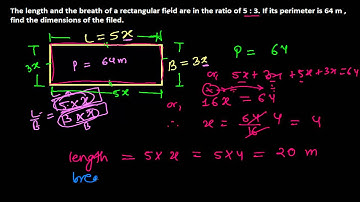 The length and the breath of a rectangular field are in the ratio of 5 : 3. If its perimeter is 64 m ,
find the dimensions of the filed.
L = 5x
3x
P = 64m
B = 3x
5x
L/B = (5 × x)/(3 × x)
B
P = 64
or, 5x + 3x + 5x + 3x = 64
16x = 64
or,
∴ x = 64/16 4 = 4
length = 5 × x = 5×4 = 20 m
brea